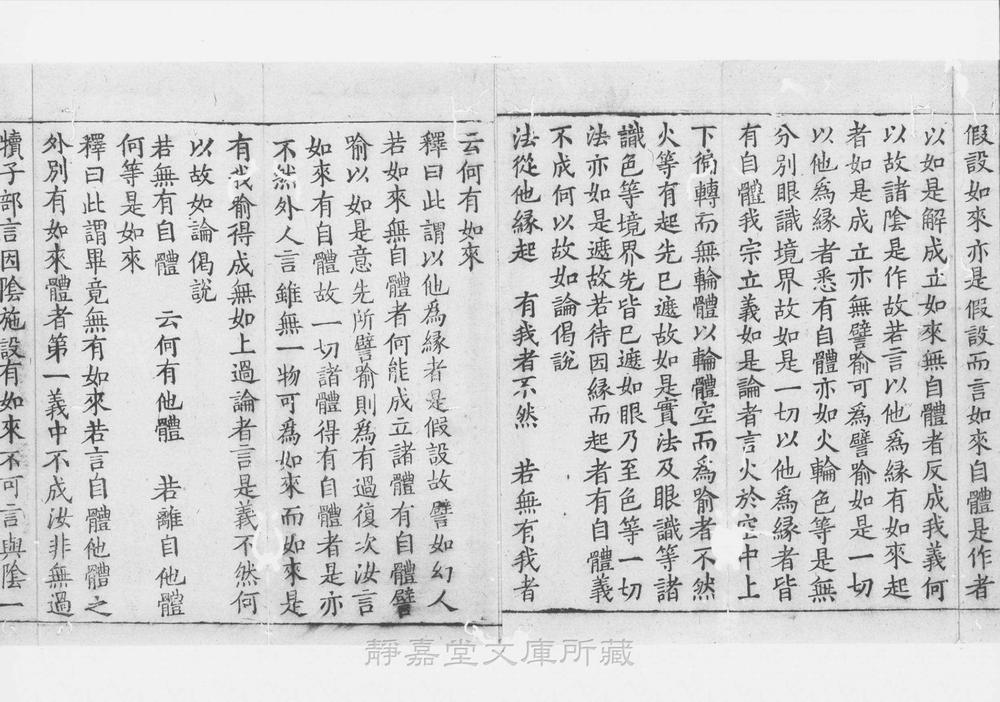 假設如來亦是假設而言如來自體是作者
以如是解成立如來無自體者反成我義何
以故諸陰是作故若言以他為緣有如來起
者如是成立亦無譬喻可為譬喻如是一切
以他為緣者悉有自體亦如火輪色等是無
分別眼識境界故如是一切以他為緣者皆
有自體我宗立義如是論者言火於空中上
下徧轉而無輪體以輪體空而為喻者不然
火等有起先已遮故如是實法及眼識等諸
識色等境界先皆已遮如眼乃至色等一切
法亦如是遮故若待因緣而起者有自體義
不成何以故如論偈說
法從他緣起　有我者不然　若無有我者
云何有如來
釋曰此謂以他為緣者是假設故譬如幻人
若如來無自體者何能成立諸體有自體譬
喻以如是意先所譬喻則為有過復次汝言
如來有自體故一切諸體得有自體者是亦
不然外人言雖無一物可為如來而如來是
有我喻得成無如上過論者言是義不然何
以故如論偈說
若無有自體　云何有他體　若離自他體
何等是如來
釋曰此謂畢竟無有如來若言自體他體之
外別有如來體者第一義中不成汝非無過
犢子部言因陰施設有如來不可言與陰一
靜嘉堂文庫所藏